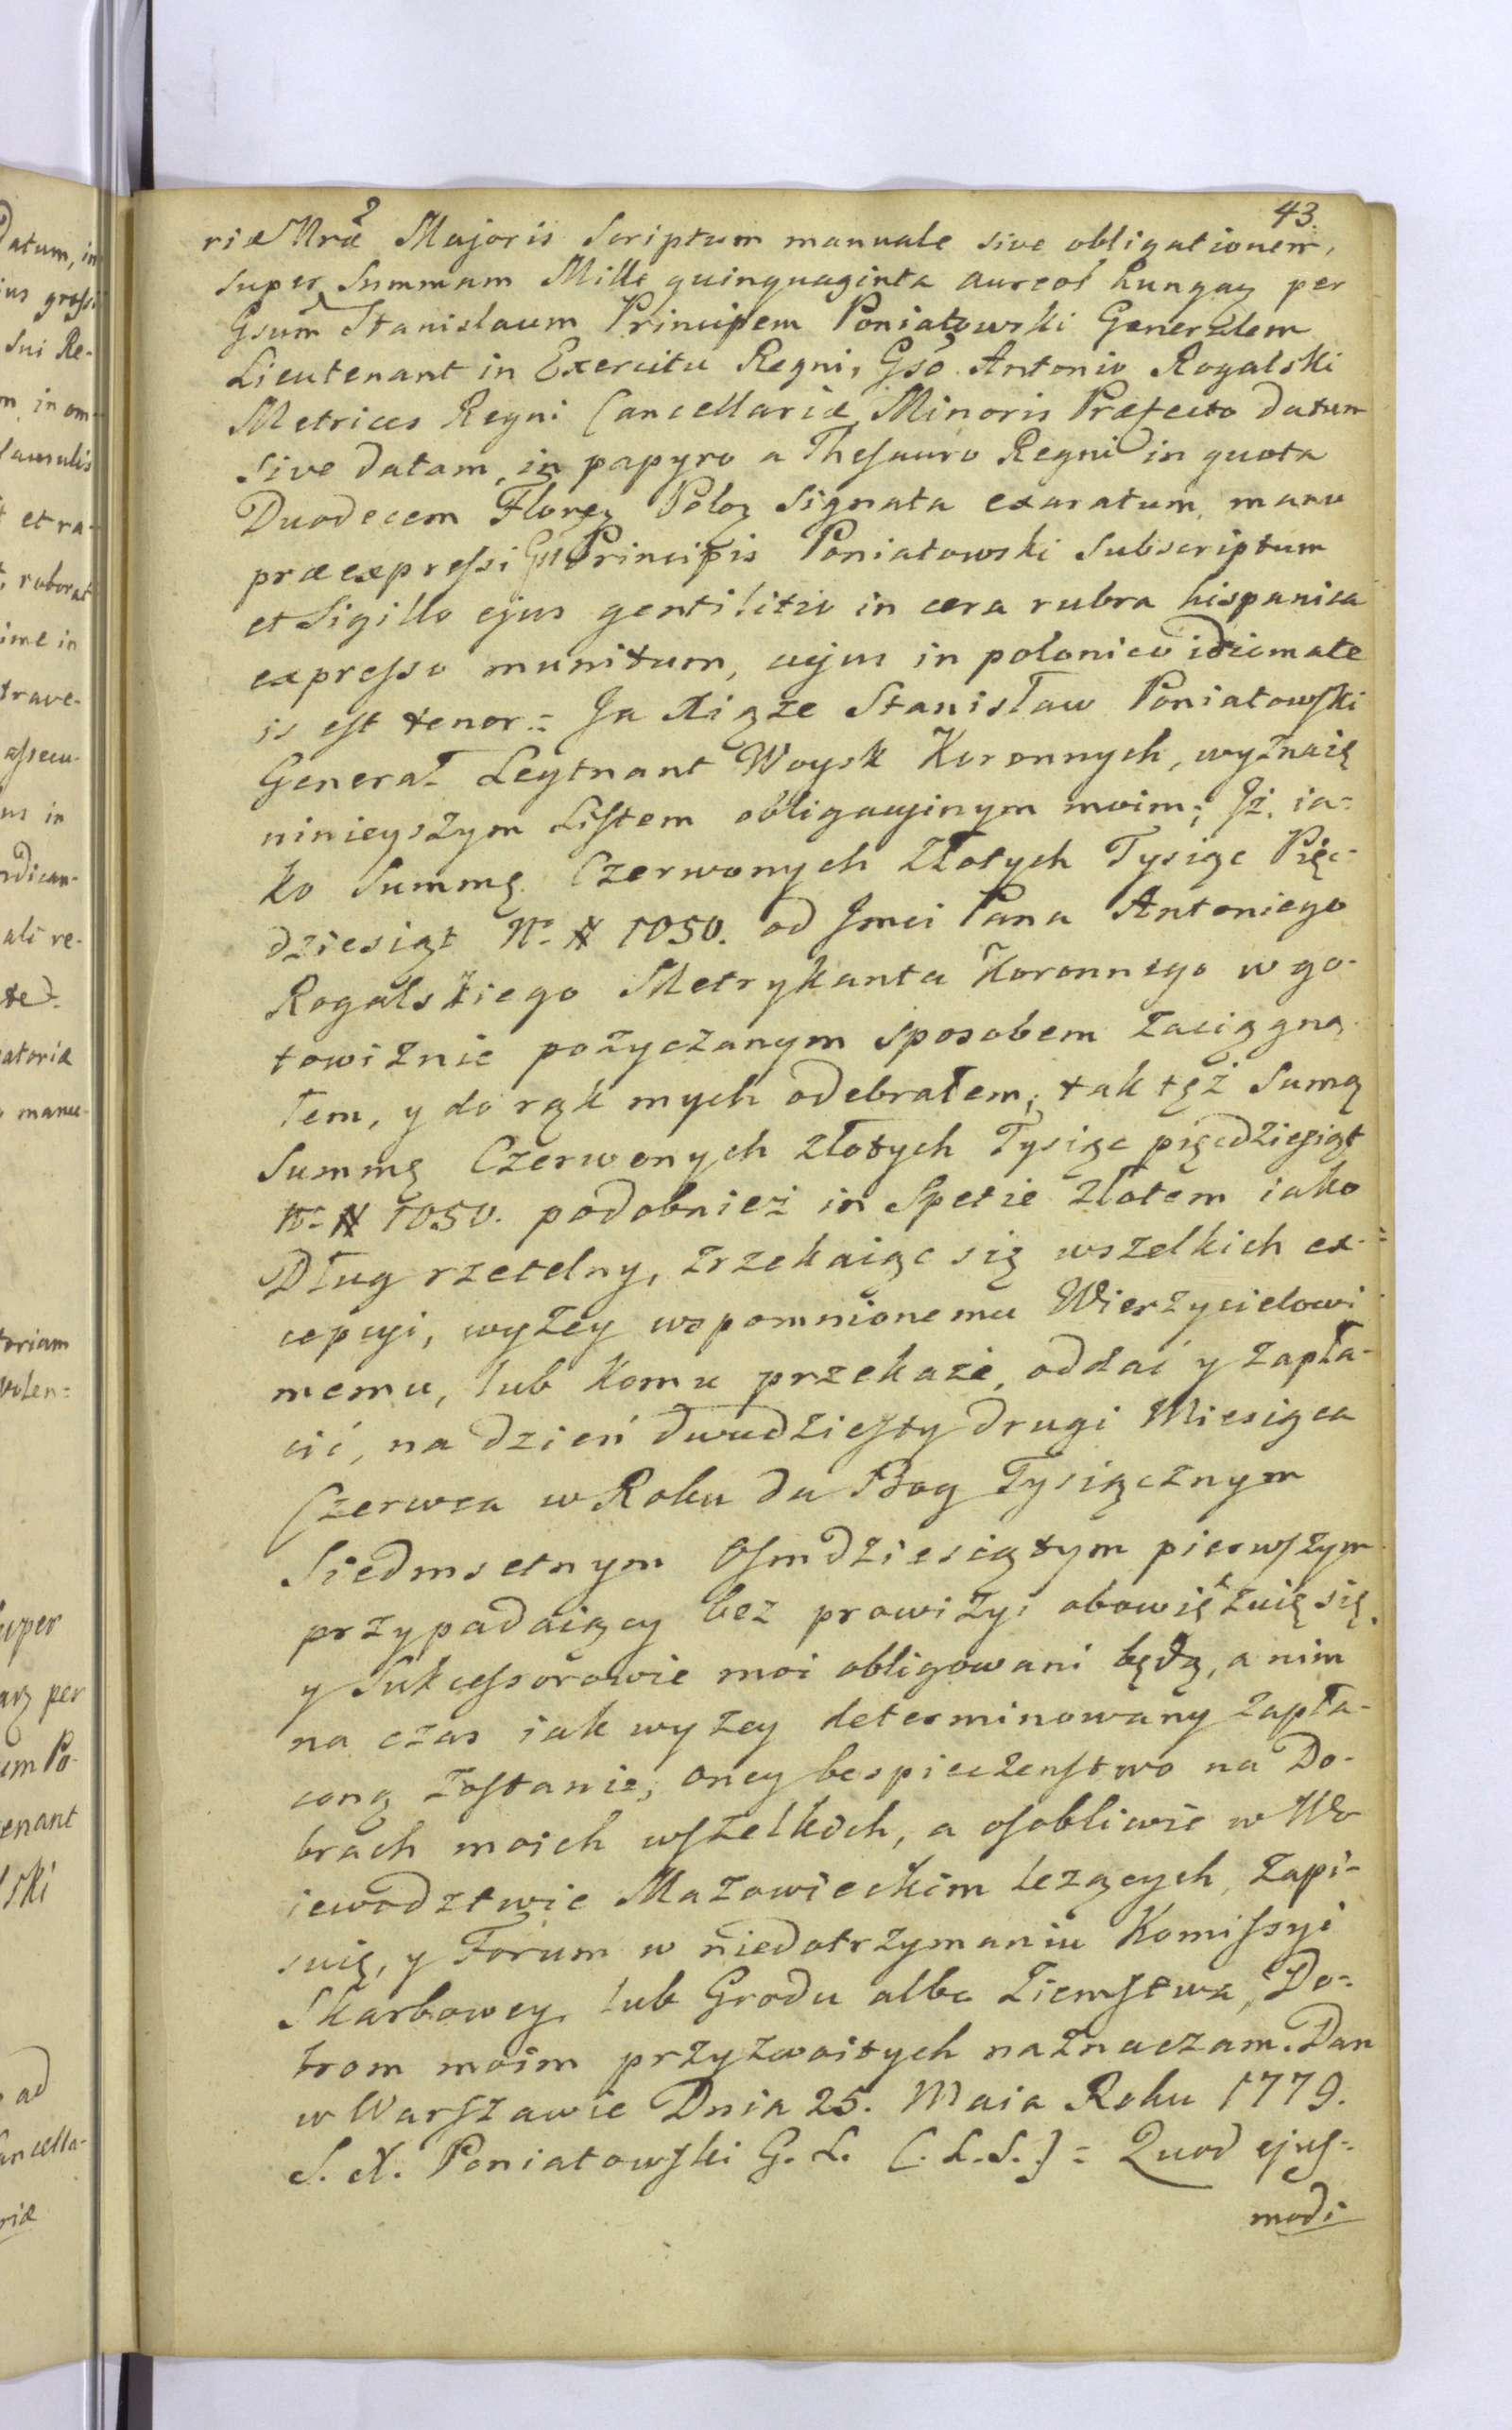 43.
riæ Nræ Majoris Scriptum manuale sive obligationem,
super Summam Mille quinquaginta aureos hungaʒ per
Gsum Stanislaum Principem Poniatowski Generalem
Lieutenant in Exercitu Regni, Gso Antonio Rogalski
Metrices Regni Cancellariæ Minoris Præfecto datum
sive datam, in papyro a Thesauro Regni in quota
Duodecem Floreʒ Poloʒ Signata exaratum, manu
præexpressi Gsi Principis Poniatowski Subscriptum
et Sigillo ejus gentilitio in cera rubra hispanica
expresso munitum, cujus in polonico idiomate
is est tenor = Ja Xiąze Stanisław Poniatowski
Generał Leytnant Woysk Koronnych, wyznaię
ninieyszym Listem obligacyinym moim; Iż, ia=
ko Summę Czerwonych Złotych Tysiąc Pięć-
dziesiąt Nº # 1050. od Jmci Pana Antoniego
Rogalskiego Metrykanta Koronnego w go-
towiznie pożyczanym sposobem zaciągną
łem, y do rąk mych odebrałem, tak tęż Samą
Summę Czerwonych złotych Tysiąc pięćdziesiąt
Nº # 1050. podobnież in Spetie Złotem iako
Dług rzetelny, zrzekaiąc się wszelkich ex-
cepcyi, wyżey wspomnionemu Wierzycielowi
memu, lub komu przekaże, oddać y zapła-
cić, na dzień dwudziesty drugi Miesiąca
Czerwca w Roku da Bog Tysiącznym
Siedmsetnym Osmdziesiątym pierwszym
przypadaiący bez prowizyi obowięzuię się,
y Sukcessorowie moi obligowani będą, a nim
na czas iak wyzey determinowany zapła-
coną zostanie, oney bespieczenstwo na Do-
brach moich wszelkich, a osobliwie w Wo
iewodztwie Mazowieckim lezących, zapi-
suię, y Forum w niedotrzymaniu Komissyi
Skarbowey, lub Grodu albo Ziemstwa, Do=
brom moim przyzwoitych naznaczam. Dan
w Warszawie Dnia 25. Maia Roku 1779.
S. X. Poniatowski G. L. (. L. S. .) = Quod ejus=
modi